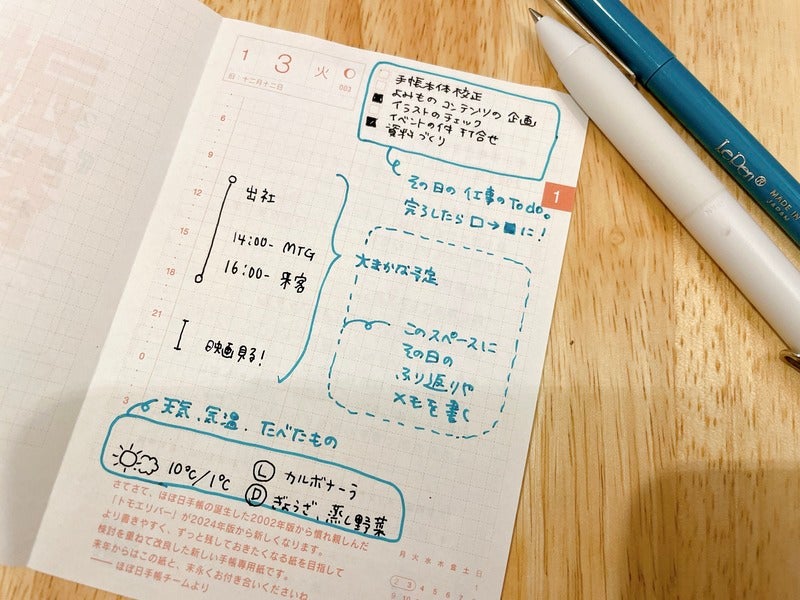 1 3 火
旧 十二月十二日 003
手帳本体校正
よみもの コンテンツの 企画
イラストのチェック
イベントの件 打合せ
資料づくり
その日の仕事のTodo。
完了したら□→■に!
1
6
9
12
15
18
21
0
3
出社
14:00- MTG
16:00- 来客
映画見る!
大まかな予定
このスペースに
その日の
ふり返りや
メモを書く
天気、気温、たべたもの
10℃/1℃
Ⓛ カルボナーラ
Ⓓ ぎょうざ、蒸し野菜
さてさて、ほぼ日手帳の誕生した2002年版から慣れ親しんだ
「トモエリバー」が2024年版から新しくなります。
より書きやすく、ずっと残しておきたくなる紙を目指して
検討を重ねて改良した新しい手帳専用紙です。
来年からはこの紙と、末永くお付き合いくださいね
―― ほぼ日手帳チームより
月 火 水 木 金 土 日
1
2 3 4 5 6 7
9 10
LeDen®
MADE IN
JAPAN